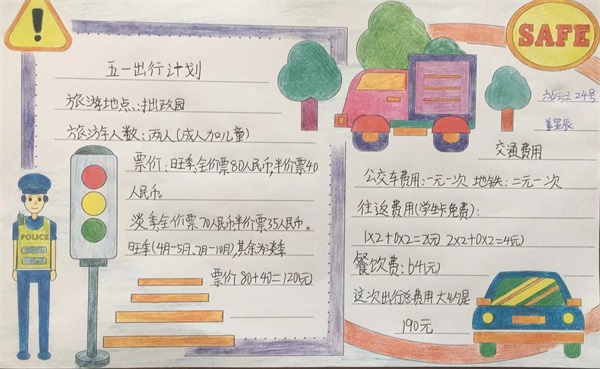 五一出行计划
旅游地点:拙政园
旅游人数:两人(成人加儿童)
票价:旺季全价票80人民币,半价票40
人民币。
淡季全价票70人民币半价票35人民币。
旺季(4月-5日、7月-10月),其余为淡季
票价80+40=120(元)
POLICE
SAFE
24号
交通费用
公交车费用:一元一次 地铁:二元一次
往返费用(学生卡免费):
1×2+0×2=2(元) 2×2+0×2=4(元)
餐饮费:64(元)
这次出行总费用大约是
190元